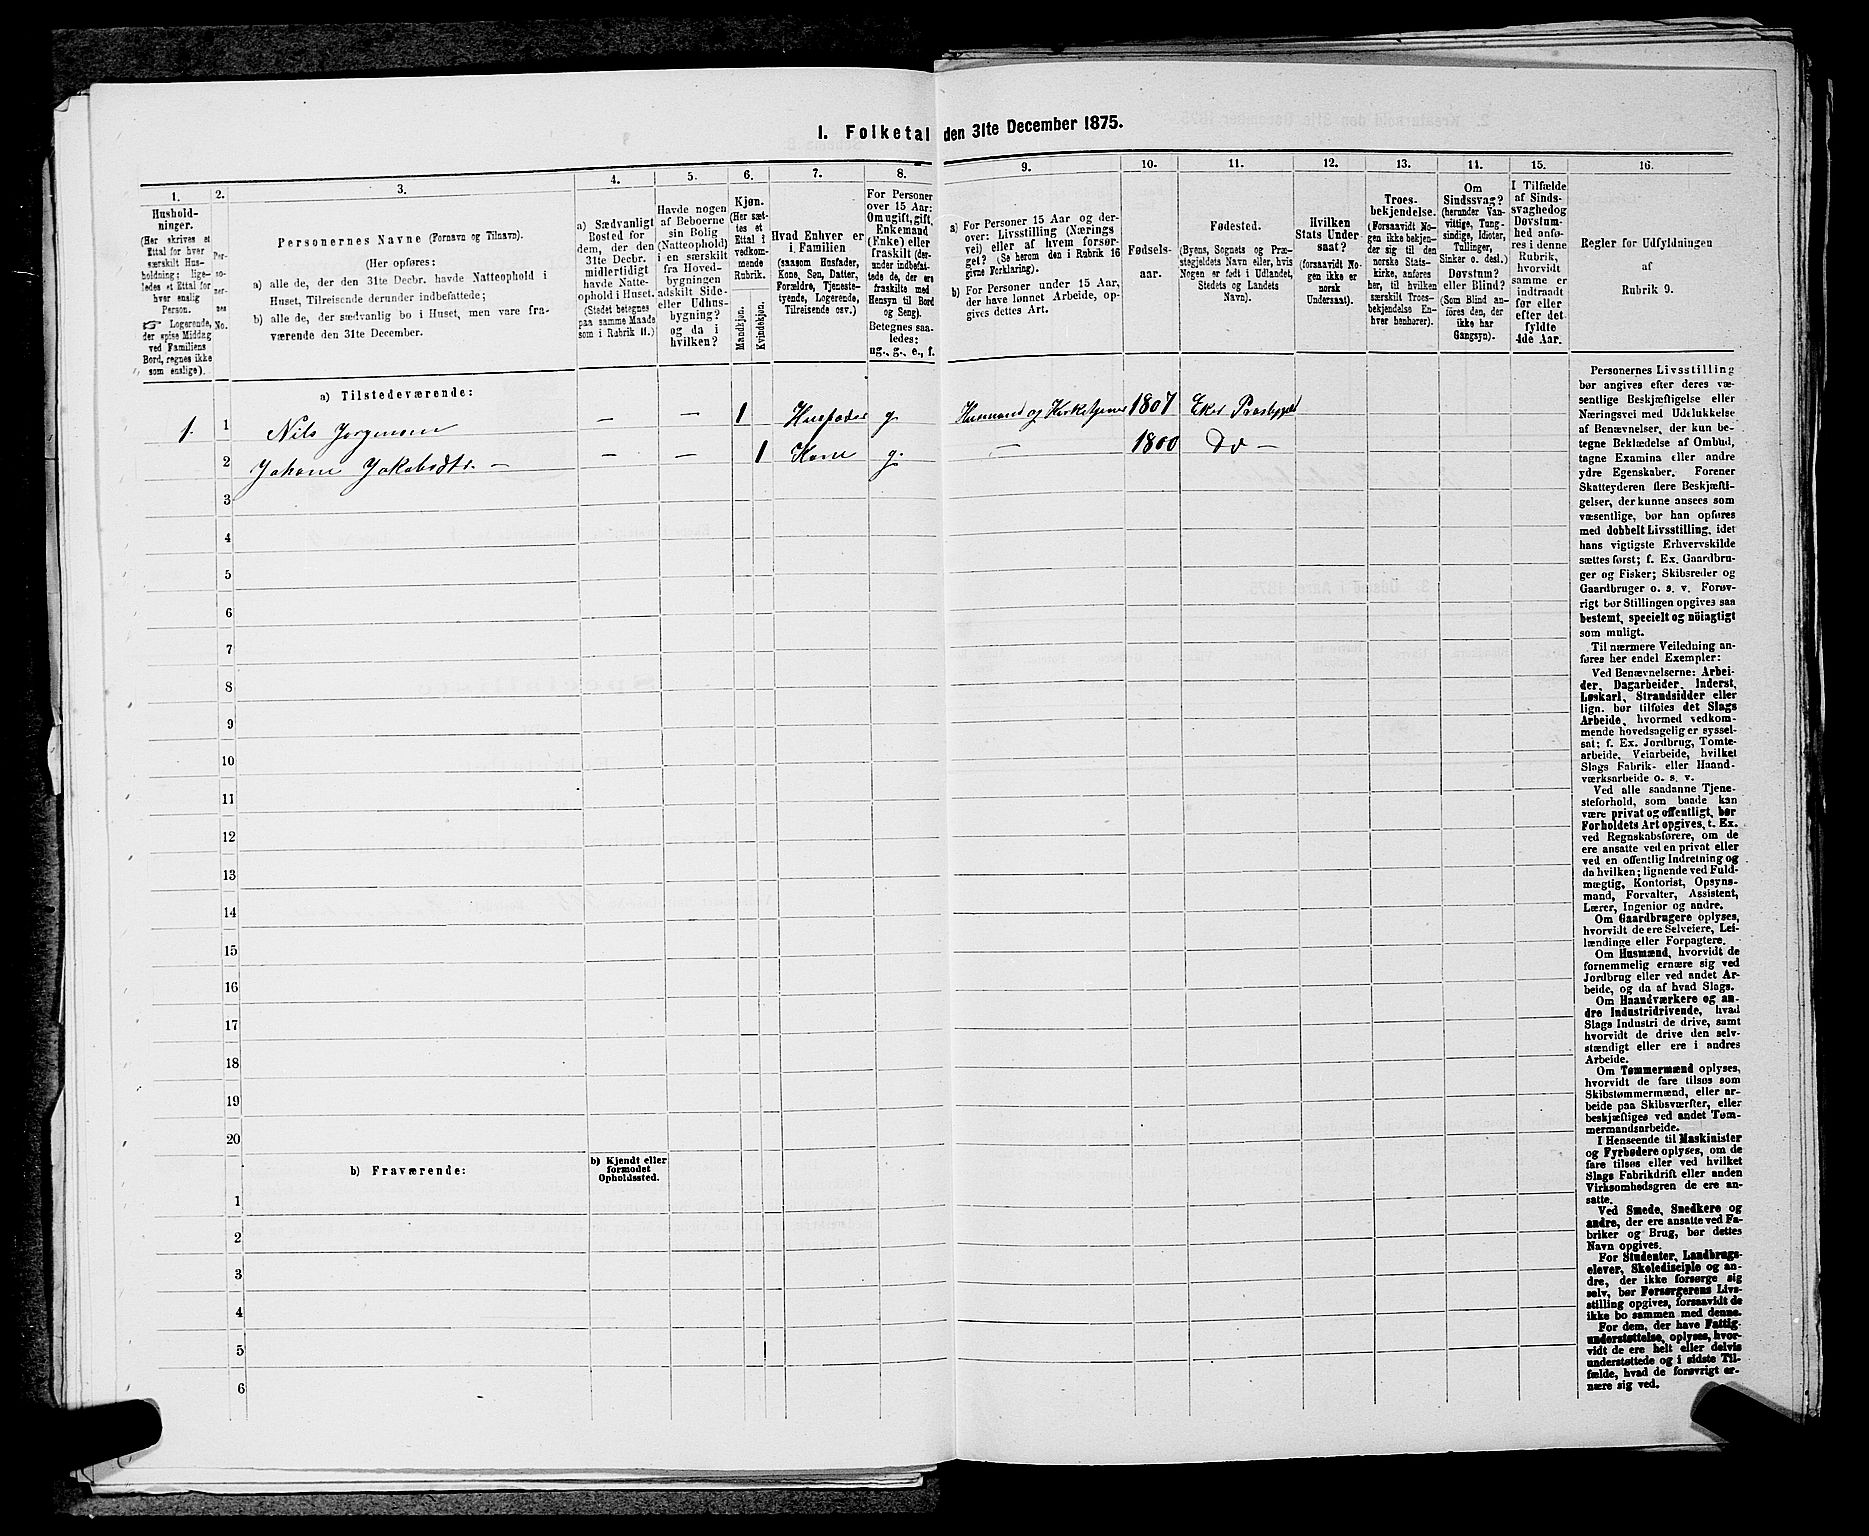 1. Folketal den 31te December 1875.
1.
2.
3.
4.
5.
6.
7.
8.
9.
10.
11.
12.
13.
14.
15.
16.
Hushold-
ninger.
(Her skrives et
Ettal for hver
særskilt Hus-
holdning; lige-
ledes et Ettal for
hver enslig
Person.
☞ Logerende,
der spise Middag
ved Familiens
Bord, regnes ikke
som enslige).
Per-
so-
ner-
nes
No.
Personernes Navne (Fornavn og Tilnavn).
(Her opføres:
a) alle de, der den 31te Decbr. havde Natteophold i
Huset, Tilreisende derunder indbefattede;
b) alle de, der sædvanlig bo i Huset, men vare fra-
værende den 31te December.
a) Sædvanligt
Bosted for
dem, der den
31te Decbr.
midlertidigt
havde Natte-
ophold i Huset.
(Stedet betegnes
paa samme Maade
som i Rubrik 11.)
Havde nogen
af Beboerne
sin Bolig
(Natteophold)
i en særskilt
fra Hoved-
bygningen
adskilt Side-
eller Udhus-
bygning?
og da i
hvilken?
Kjøn.
(Her sæt-
tes et
Ettal i
vedkom-
mende
Rubrik.
Mandkjøn.
Kvindekjøn.
Hvad Enhver er
i Familien
(saasom Husfader,
Kone, Søn, Datter,
Forældre, Tjeneste-
tyende, Logerende,
Tilreisende osv.)
For Personer
over 15 Aar:
Om ugift, gift,
Enkemand
(Enke) eller
fraskilt (der-
under indbefat-
tede de, der ere
fraskilte med
Hensyn til Bord
og Seng).
Betegnes saa-
ledes:
ug., g., e., f.
a) For Personer 15 Aar og der-
over: Livsstilling (Nærings
vei) eller af hvem forsør-
get? (Se herom den i Rubrik 16
givne Forklaring).
b) For Personer under 15 Aar,
der have lønnet Arbeide, op-
gives dettes Art.
Fødsels-
aar.
Fødested.
(Byens, Sognets og Præ-
stegjeldets Navn eller, hvis
Nogen er født i Udlandet,
Stedets og Landets
Navn).
Hvilken
Stats Under
saat?
(forsaavidt No-
gen ikke er
norsk
Undersaat).
Troes-
bekjendelse.
(Forsaavidt No-
gen ikke bekjen-
der sig til den
norske Stats-
kirke, anføres
her, til hvilken
særskilt Troes-
bekjendelse En-
hver henhører).
Om
Sindssvag?
(herunder Van-
vittige, Tung-
sindige, Idioter,
Tullinger,
Sinker o. desl.)
Døvstum?
eller Blind?
(Som Blind an-
føres den, der
ikke har
Gangsyn).
I Tilfælde
af Sinds-
svaghed og
Døvstum-
hed anfø-
res i denne
Rubrik,
hvorvidt
samme er
indtraadt
før eller
efter det
fyldte
4de Aar.
Regler for Udfyldningen
af
Rubrik 9.
a) Tilstedeværende:
1. 1 Nils Jorgensen — — 1 Husfader g. Husmand og Kirketjener 1807 Eker Præstegjeld
2 Johane Jakobsdtr. — — — 1 Kone g. — 1800 Do —
3
4
5
6
7
8
9
10
11
12
13
14
15
16
17
18
19
20
b) Fraværende:
b) Kjendt eller
formodet
Opholdssted.
1
2
3
4
5
6
Personernes Livsstilling
bør angives efter deres væ-
sentlige Beskjæftigelse eller
Næringsvei med Udelukkelse
af Benævnelser, der kun be-
tegne Beklædelse af Ombud,
tagne Examina eller andre
ydre Egenskaber. Forener
Skatteyderen flere Beskjæfti-
gelser, der kunne ansees som
væsentlige, bør han opføres
med dobbelt Livsstilling, idet
hans vigtigste Erhvervskilde
sættes først; f. Ex. Gaardbru-
ger og Fisker; Skibsreder og
Gaardbruger o. s. v. Forøv-
rigt bør Stillingen opgives saa
bestemt, specielt og nöiagtigt
som muligt.
Til nærmere Veiledning an-
føres her endel Exempler:
Ved Benævnelserne: Arbei-
der, Dagarbeider, Inderst,
Løskarl, Strandsidder eller
lign. bør tilføies det Slags
Arbeide, hvormed vedkom-
mende hovedsagelig er syssel-
sat; f. Ex. Jordbrug, Tomte-
arbeide, Veiarbeide, hvilket
Slags Fabrik- eller Haand-
værksarbeide o. s. v.
Ved alle saadanne Tjene-
steforhold, som baade kan
være privat og offentligt, bør
Forholdets Art opgives, t. Ex.
ved Regnskabsførere, om de
ere ansatte ved en privat eller
ved en offentlig Indretning og
da hvilken; lignende ved Fuld-
mægtig, Kontorist, Opsyns-
mand, Forvalter, Assistent,
Lærer, Ingeniør og andre.
Om Gaardbrugere oplyses,
hvorvidt de ere Selveiere, Lei-
lændinge eller Forpagtere.
Om Husmænd, hvorvidt de
fornemmelig ernære sig ved
Jordbrug eller ved andet Ar-
beide, og da af hvad Slags.
Om Haandværkere og an-
dre Industridrivende, hvad
Slags Industri de drive, samt
hvorvidt de drive den selv-
stændigt eller ere i andres
Arbeide.
Om Tømmermænd oplyses,
hvorvidt de fare tilsøs som
Skibstømmermænd, eller ar-
beide paa Skibsværfter, eller
beskjæftiges ved andet Tøm-
mermandsarbeide.
I Henseende til Maskinister
og Fyrbødere oplyses, om de
fare tilsøs eller ved hvilket
Slags Fabrikdrift eller anden
Virksomhedsgren de ere an-
satte.
Ved Smede, Snedkere og
andre, der ere ansatte ved Fa-
briker og Brug, bør dettes
Navn opgives.
For Studenter, Landbrugs-
elever, Skoledisciple og an-
dre, der ikke forsørge sig
selv, bør Forsørgerens Livs-
stilling opgives, forsaavidt de
ikke bo sammen med denne.
For dem, der have Fattig-
understøttelse, oplyses, hvor-
vidt de ere helt eller delvis
understøttede og i sidste Til-
fælde, hvad de forøvrigt er-
nære sig ved.